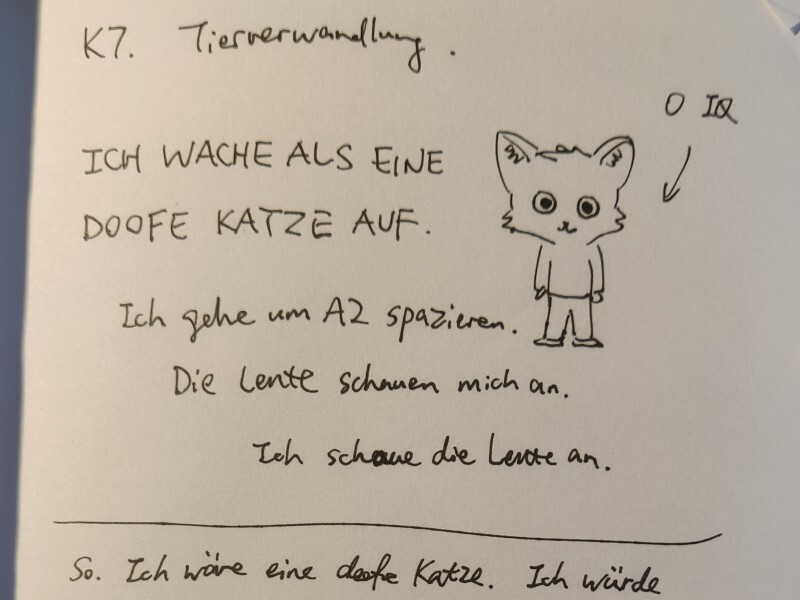 K7. Tierverwandlung.
0 IQ
ICH WACHE ALS EINE
DOOFE KATZE AUF.
Ich gehe um A2 spazieren.
Die Leute schauen mich an.
Ich schaue die Leute an.
So. Ich wäre eine doofe Katze. Ich würde